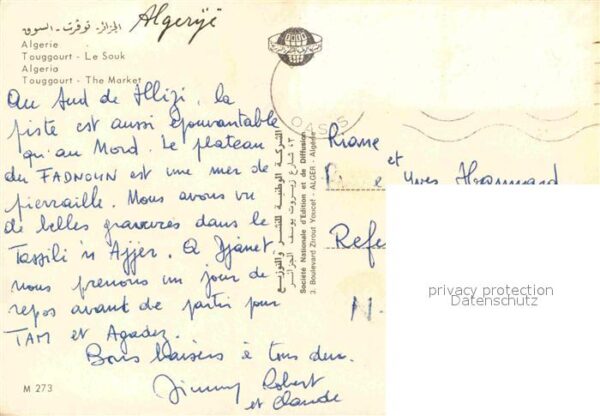 الجزائر - توقرت - السوق
Algerijë
Algerie
Touggourt - Le Souk
Algeria
Touggourt - The Market
Au Sud de Illizi, la
piste est aussi épouvantable
qu'au Nord. Le plateau
du FADNOUN est une mer de
pierraille. Nous avons vu
de belles gravures dans le
Tassili n Ajjer. A Djanet
nous prenons un jour de
repos avant de partir pour
TAM et Agadez.
Bons baisers à tous deux.
Jimmy Robert
et Claude
M 273
OASIS
الشركة الوطنية للنشر والتوزيع
٤٣ شارع زيروت يوسف الجزائر
Société Nationale d'Edition et de Diffusion
3, Boulevard Zirout Youcef - ALGER - Algérie
et
Yves
Refe
privacy protection
Datenschutz